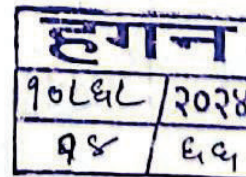 हगन
१०८६८ २०२४
१४ ६६